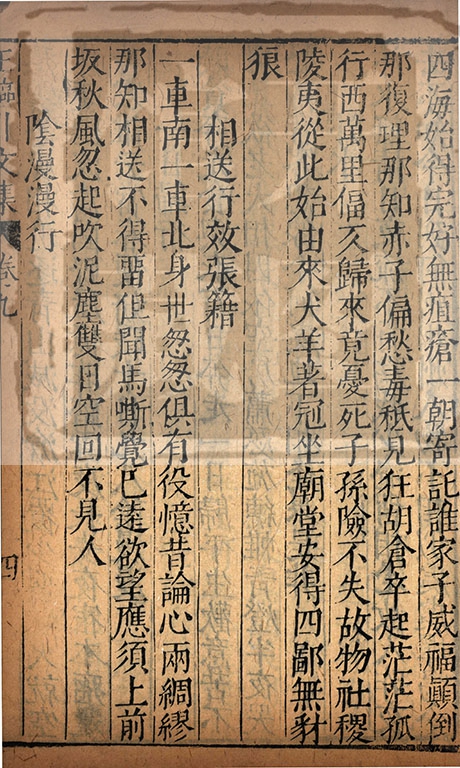 四海始得完好無疽瘡一朝寄託誰家子威福顚倒
那復理那知赤子偏愁毒秪見狂胡倉卒起茫茫孤
行西萬里偪仄歸來竟憂死子孫險不失故物社稷
陵夷從此始由來犬羊著冠坐廟堂安得四鄙無豺
狼
相送行效張籍
一車南一車北身世怱怱俱有役憶昔論心兩綢繆
那知相送不得畱但聞馬嘶覺已遠欲望應須上前
坂秋風忽起吹泥塵雙目空回不見人
陰漫漫行
王臨川文集 卷九
四